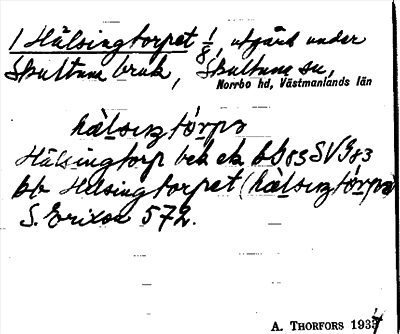 1 Hälsingtorpet 1/8, utgård under
Skultuna bruk, Skultuna sn,
Norrbo hd, Västmanlands län
hàlsıŋtórpə
Hälsingtorp bek ek bg 83 SVg 83
bb Helsingtorpet (hàlsıŋtórpə)
S. Erixon 572.
A. THORFORS 1934